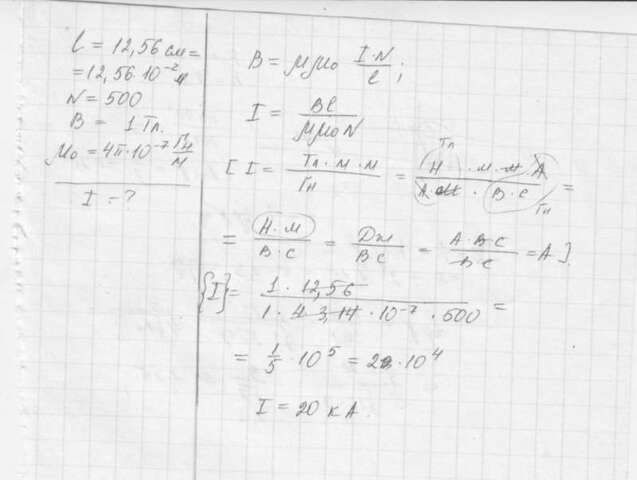 l = 12,56 см =
= 12,56·10⁻² м
N = 500
B = 1 Тл.
μ₀ = 4π·10⁻⁷ Гн/м
I - ?
B = μμ₀ I·N/l ;
I = Bl/μμ₀N
[ I = Тл·м·м/Гн = Н·м·м·А/А·м·В·с =
Тл
Гн
= Н·м/В·с = Дж/В с = А·В·с/В·с = А ]
{I} = 1·12,56/1·4·3,14·10⁻⁷·500 =
= 1/5·10⁵ = 2·10⁴
I = 20 кА